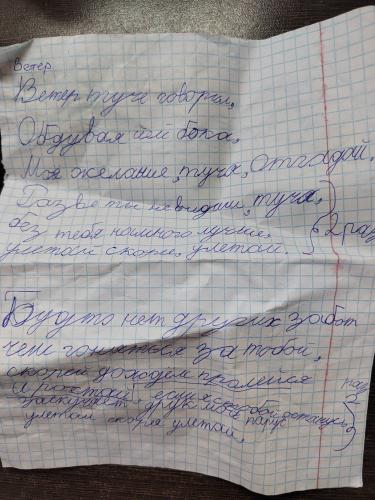 Ветер
Ветер туче говорил,
Обдувая ей бока,
Моё желание, туча, отгадай.
Разве ты не видишь, туча,
без тебя намного лучше,
улетай скорее, улетай.
2 раз
Будто нет других забот
чем гоняться за тобой,
скорей дождем пролейся
и растай, если я с тобой останусь
заскучает друг мой парус
улетай скорей улетай.
2 раз